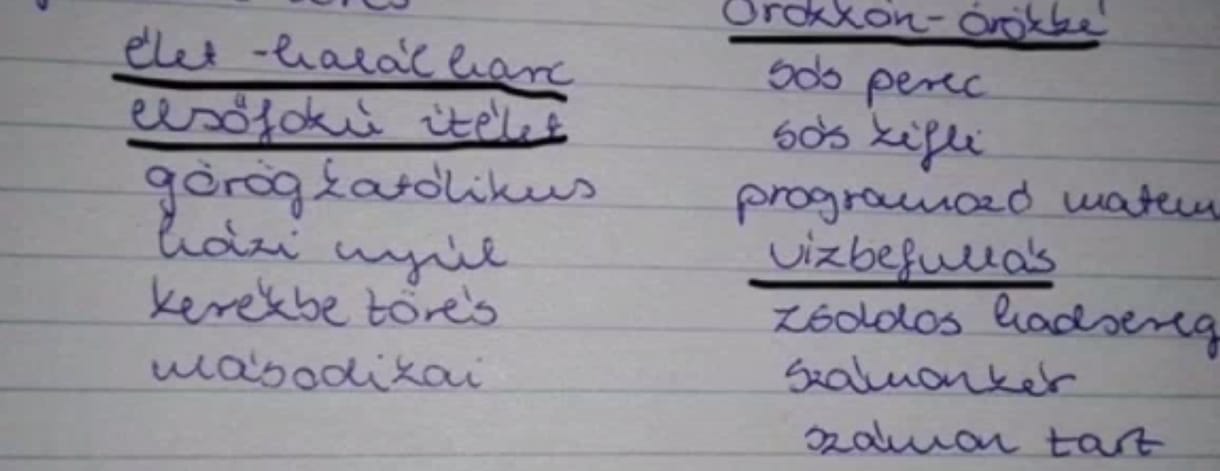 élet-halál harc
elsőfokú ítélet
görög katólikus
házi nyúl
kerékbe törés
másodikai
örökkön-örökké
sós perec
sós kifli
programozó matem
vízbefullás
zsoldos hadsereg
számonkér
számon tart